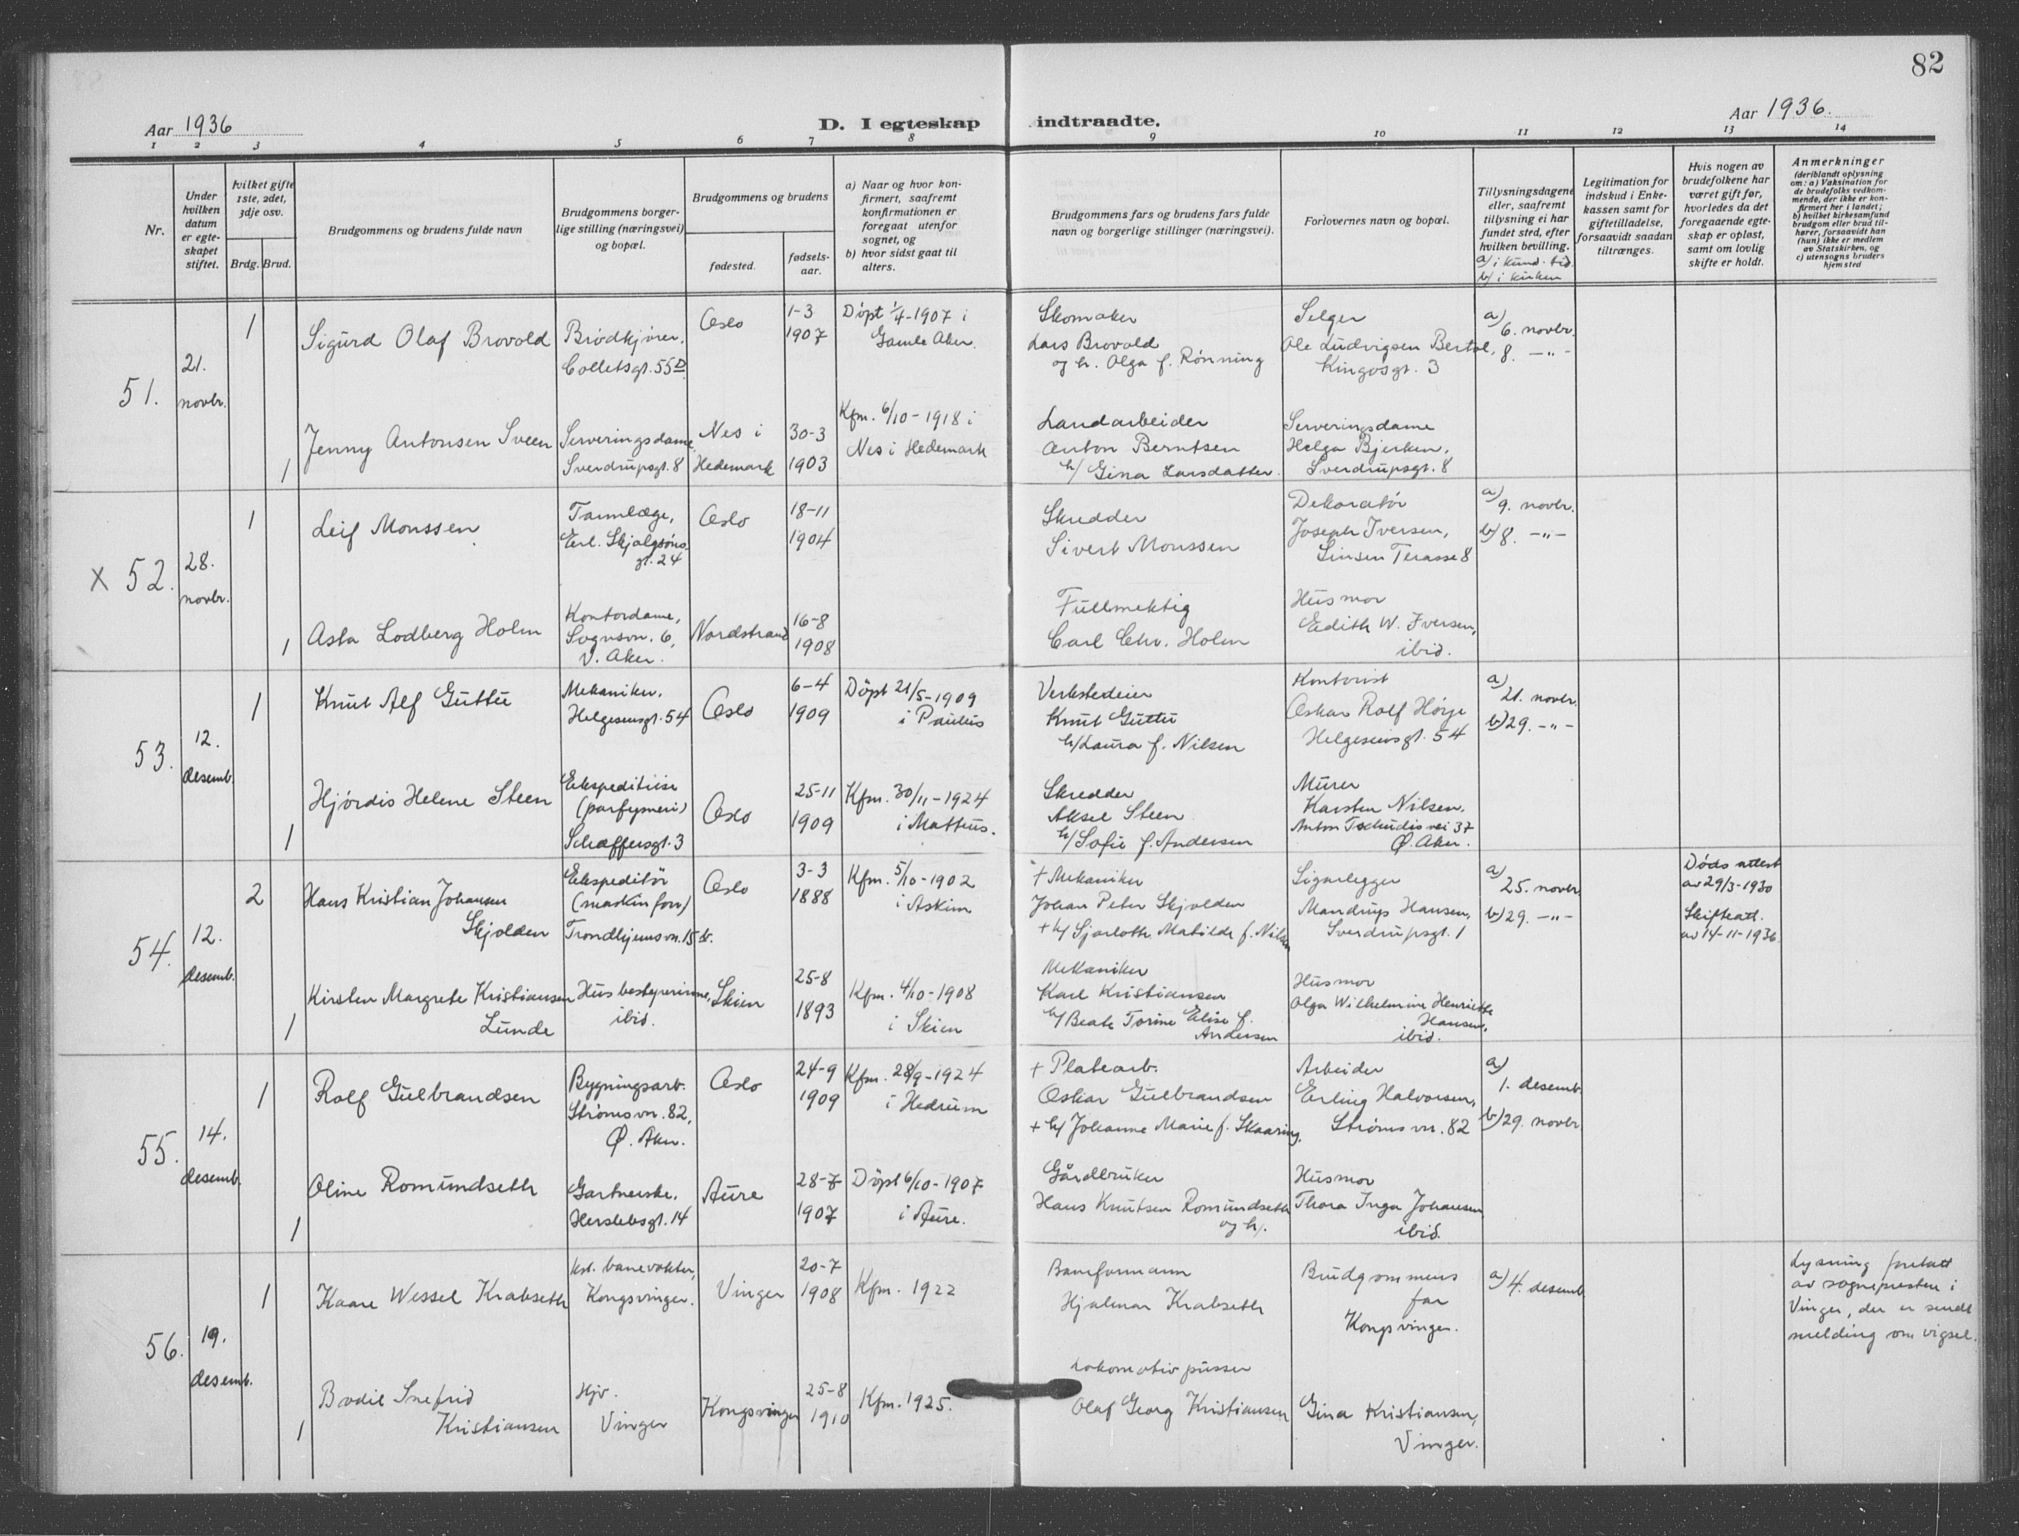 82
Aar 1936
D. I egteskap indtraadte.
Aar 1936.
1 2 3 4 5 6 7 8 9 10 11 12 13 14
Nr.
Under hvilken datum er egteskapet stiftet.
hvilket gifte 1ste, 2det, 3dje osv.
Brdg. Brud.
Brudgommens og brudens fulde navn
Brudgommens borgerlige stilling (næringsvei) og bopæl.
Brudgommens og brudens
fødested.
fødselsaar.
a) Naar og hvor konfirmert, saafremt konfirmationen er foregaat utenfor sognet, og
b) hvor sidst gaat til alters.
Brudgommens fars og brudens fars fulde navn og borgerlige stillinger (næringsvei).
Forlovernes navn og bopæl.
Tillysningsdagene eller, saafremt tillysning ei har fundet sted, efter hvilken bevilling.
a) i kund. tid.
b) i kirken
Legitimation for indskud i Enkekassen samt for giftetilladelse, forsaavidt saadan tiltrænges.
Hvis nogen av brudefolkene har været gift før, hvorledes da det foregaaende egteskap er opløst, samt om lovlig skifte er holdt.
Anmerkninger
(deriblandt oplysning om: a) Vaksination for de brudefolks vedkommende, der ikke er konfirmert her i landet;
b) hvilket kirkesamfund brudgom eller brud tilhører, forsaavidt han (hun) ikke er medlem av Statskirken, og
c) utensogns bruders hjemsted
51.
21. novbr.
1
Sigurd Olaf Brovold
Brødkjører.
Colletsgt. 55D
Oslo
1-3
1907
Døpt 1/4-1907 i
Gamle Aker.
Skomaker
Lars Brovold
og h. Olga f. Rønning
Selger
Ole Ludvigsen Bertel,
Kingosgt. 3
a)
6. novbr.
8. -"-
1
Jenny Antonsen Sveen
Serveringsdame
Sverdrupsgt. 8
Nes i
Hedemark
30-3
1903
Kfm. 6/10-1918 i
Nes i Hedemark
Landarbeider
Anton Berntsen
h/ Gina Larsdatter
Serveringsdame
Helga Bjerken,
Sverdrupsgt. 8
x 52.
28.
novbr.
1
Leif Monssen
Tannlæge,
Erl. Skjalgsøns
gt. 24
Oslo
18-11
1904
Skredder
Sivert Monssen
Dekoratør
Joseph Iversen,
Linsen Terasse 8
a)
9. novbr.
b) 8. -"-
1
Asta Lodberg Holm
Kontordame,
Sognsvn. 6,
V. Aker.
Nordstrand
16-8
1908
Fullmektig
Carl Chr. Holm
Husmor
Edith W. Iversen,
ibid.
53.
12.
desemb.
1
Knut Alf Guttu
Mekaniker.
Helgesensgt. 54
Oslo
6-4
1909
Døpt 21/5-1909
i Paulus
Verkstedeier
Knut Guttu
h/ Laura f. Nilsen
Kontorist
Oskar Rolf Høye
Helgesensgt. 54
a)
21. novbr.
b) 29. -"-
1
Hjørdis Helene Steen
Ekspeditrise
(parfymeri)
Schæffersgt. 3
Oslo
25-11
1909
Kfm. 30/11-1924
i Matteus.
Skredder
Aksel Steen
h/ Sofie f. Andersen
Murer
Karsten Nilsen.
Anton Tschudis vei 37
Ø. Aker.
54.
12.
desemb.
2
Hans Kristian Johansen
Skjolden
Ekspeditør
(maskinforr.)
Trondhjemsvn. 15 b.
Oslo
3-3
1888
Kfm. 5/10-1902
i Askim
+ Mekaniker
Johan Peter Skjolden
+ h/ Sjarlotte Matilde f. Nilsen
Sigarlegger
Mandrup Hansen,
Sverdrupsgt. 1
a)
25. novbr
b) 29. -"-
Dødsattest
av 29/3-1930
Skifteatt.
av 14-11-1936
1
Kirsten Margrete Kristiansen
Lunde
Husbestyrerinne,
ibid.
Skien
25-8
1893
Kfm. 4/10-1908
i Skien
Mekaniker
Karl Kristiansen
h/ Beate Torine Elise f.
Andersen
Husmor
Olga Wilhelmine Henriette
Hansen,
ibid.
55.
14.
desemb.
1
Rolf Gulbrandsen
Bygningsarb.
Strømsvn. 82,
Ø. Aker.
Oslo
24-9
1909
Kfm. 28/9-1924
i Hedrum
+ Platearb.
Oskar Gulbrandsen
+ h/ Johanne Marie f. Skaaring.
Arbeider
Erling Halvorsen,
Strømsvn. 82
a)
1. desemb.
b) 29. novbr
1
Oline Romundseth
Gartnerske.
Herslebsgt. 14
Aure
28-7
1907
Døpt 6/10-1907
i Aure.
Gårdbruker
Hans Knutsen Romundseth
og h/.
Husmor
Thora Inga Johansen
ibid.
56.
19.
desemb.
1
Kaare Wessel Krabseth
kst. banevokter,
Kongsvinger.
Vinger
20-7
1908
Kfm. 1922
Baneformann
Hjalmar Krabseth
Brudgommens
far
Kongsvinger.
a) 4. desemb.
Lysning foretatt
av sognepresten i
Vinger, der er sendt
melding om vigsel.
1
Bodil Snefrid
Kristiansen
Hjv.
Vinger
Kongsvinger
25-8
1910
Kfm. 1925.
Lokomotivpusser
Olaf Georg Kristiansen
Gina Kristiansen,
Vinger.